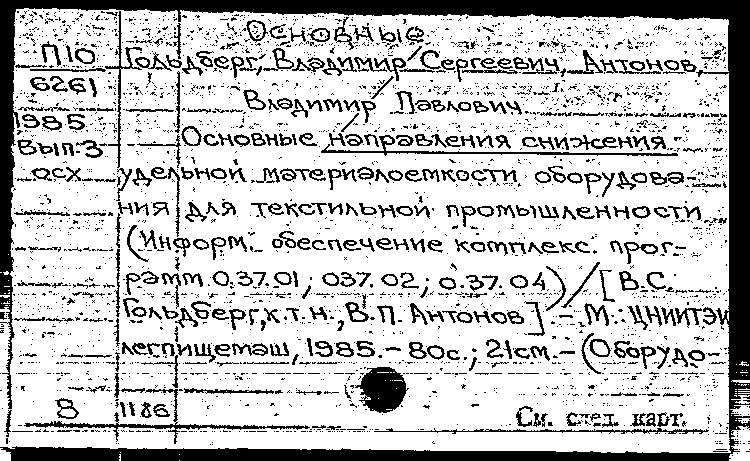 Основные
П10 Гольдберг, Владимир Сергеевич, Антонов,
6261
Владимир Павлович
1985
Основные направления снижения
Вып. 3
осх удельной материалоемкости оборудова-
ния для текстильной промышленности
(Информ. обеспечение комплекс. прог-
рамм 0.37.01; 037.02; 0.37.04) / [В.С.
Гольдберг, к.т.н., В.П. Антонов]. - М.: ЦНИИТЭИ
легпищемаш, 1985. - 80с.; 21см. - (Оборудо-
8 1186
См. след. карт.